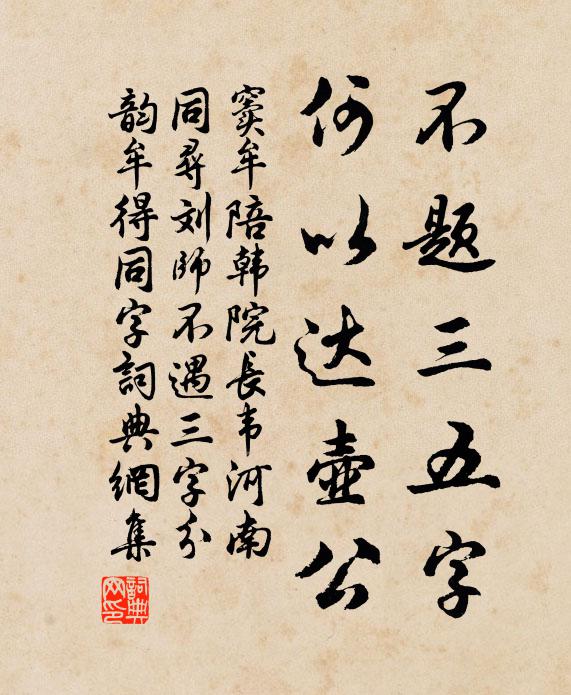 不题三五字
何以达壶公
窦牟陪韩院長韦河南
同尋刘師不遇三字分
韵牟得同字詞典網集
詞典網印